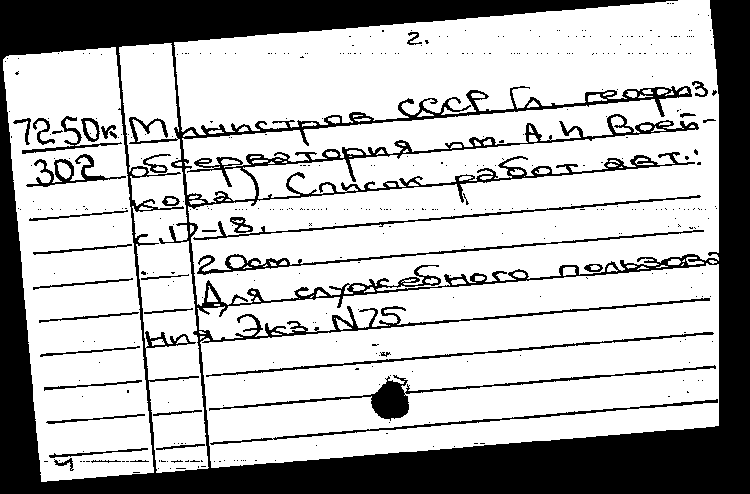 2.
72-50к Министров СССР. Гл. геофиз.
302 обсерватория им. А.И. Воей-
кова). Список работ авт.:
с.17-18.
20см.
Для служебного пользова
ния. Экз. N75